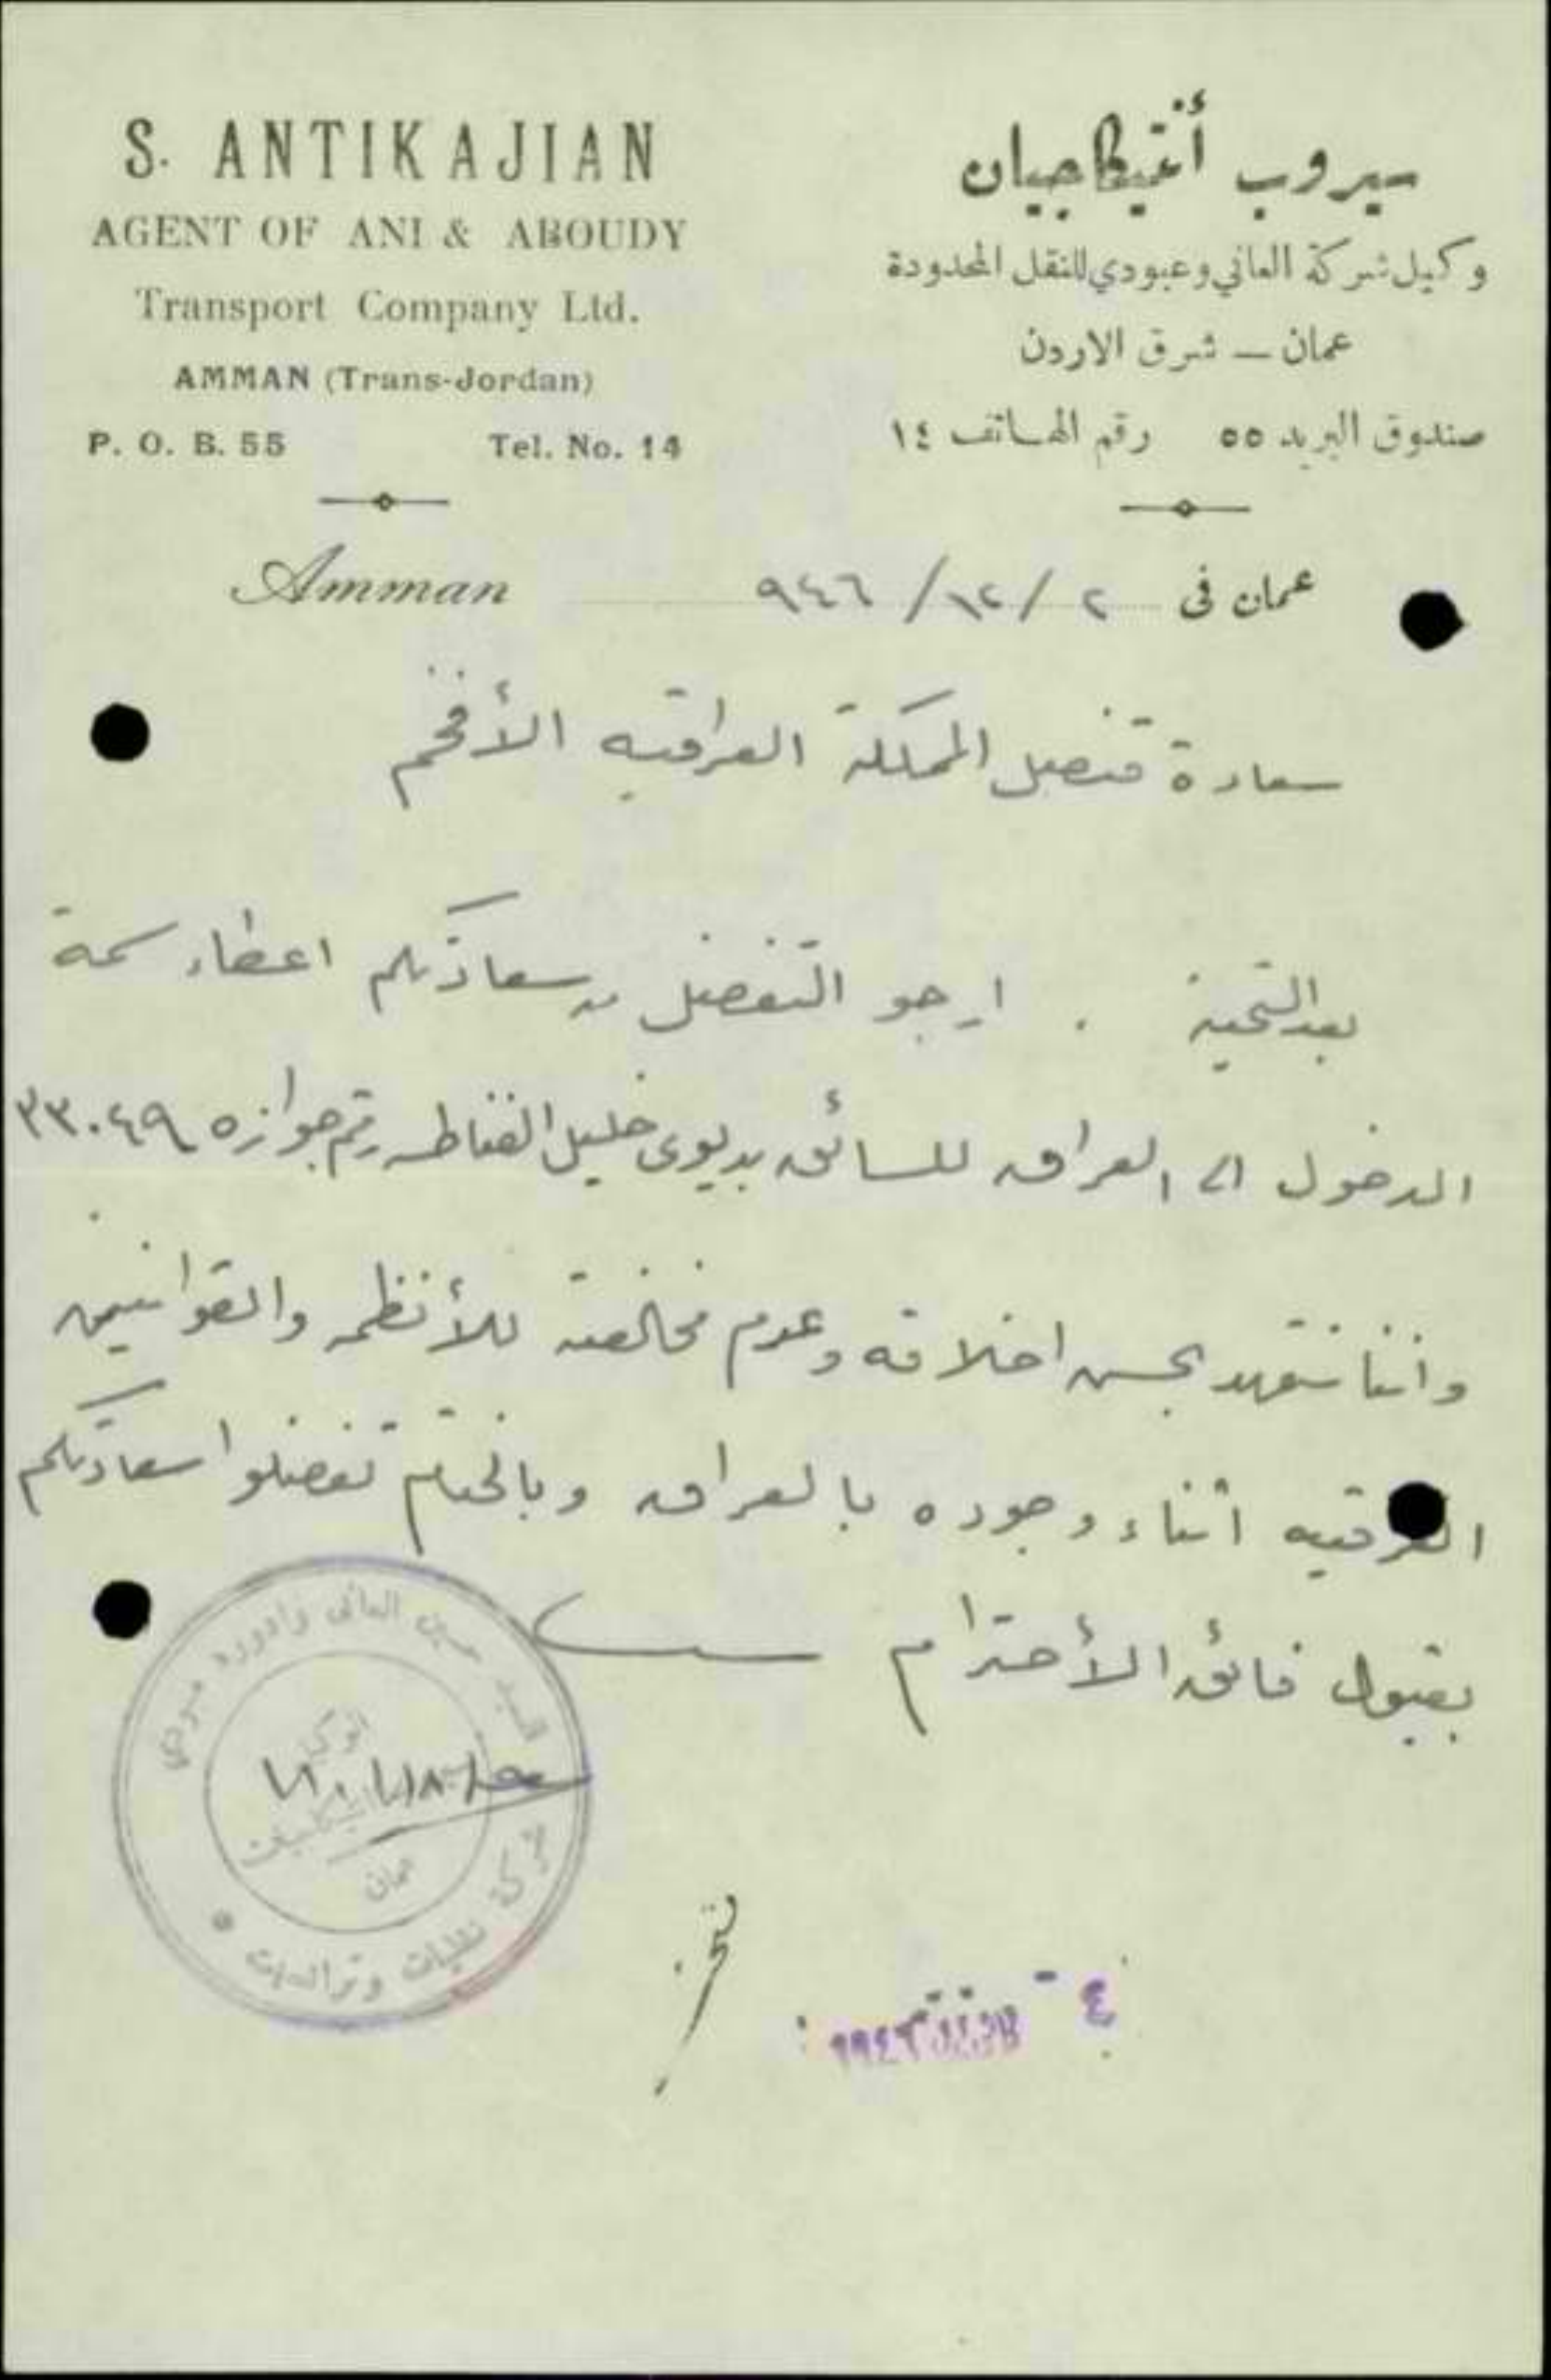 S. ANTIKAJIAN
AGENT OF ANI & ABOUDY
Transport Company Ltd.
AMMAN (Trans-Jordan)
P. O. B. 55 Tel. No. 14
سيروب أنتيكاجيان
وكيل شركة العاني وعبودي للنقل المحدودة
عمان — شرق الاردن
صندوق البريد ٥٥ رقم الهاتف ١٤
Amman
عمان في ٢ / ١٢ / ٩٤٦
سعادة قنصل المملكة العراقيه الأفخم
بعد التحية . ارجو التفضل من سعادتكم اعطاء سمة
الدخول الى العراق للسائق بديوى خليل رقم جوازه ٣٣٠٤٩
واننا نتعهد بحسن اخلاقه وعدم مخالفته للأنظمه والقوانين
العراقيه اثناء وجوده بالعراق وبالختام تفضلوا سعادتكم
بقبول فائق الأحترام
السيد حسين العاني
شركة نقليات
عمان
٤ -